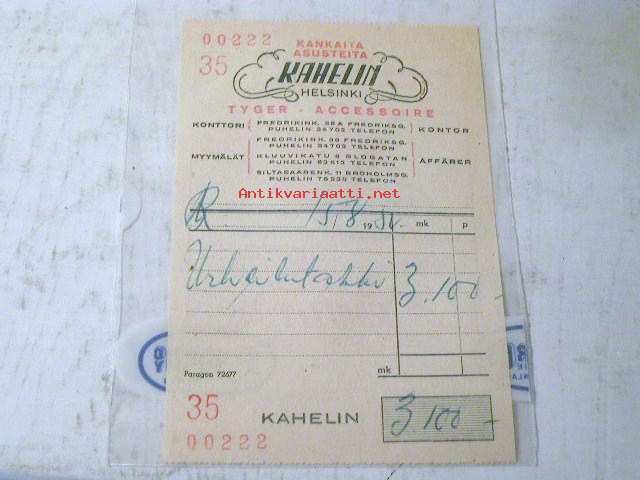 00222
35
KANKAITA
ASUSTEITA
KAHELIN
HELSINKI
TYGER - ACCESSOIRE
KONTTORI FREDRIKINK. 38A FREDRIKSG. KONTOR
PUHELIN 34702 TELEFON
FREDRIKINK. 38 FREDRIKSG.
PUHELIN 34702 TELEFON
MYYMÄLÄT KLUUVIKATU 8 GLOGATAN AFFÄRER
PUHELIN 63615 TELEFON
SILTASAARENK. 11 BROHOLMSG.
PUHELIN 76338 TELEFON
Antikvariaatti.net
15/8 1951. mk p
Urheilutakki 3.100 -
Paragon 72677 mk
35 KAHELIN 3100 -
00222